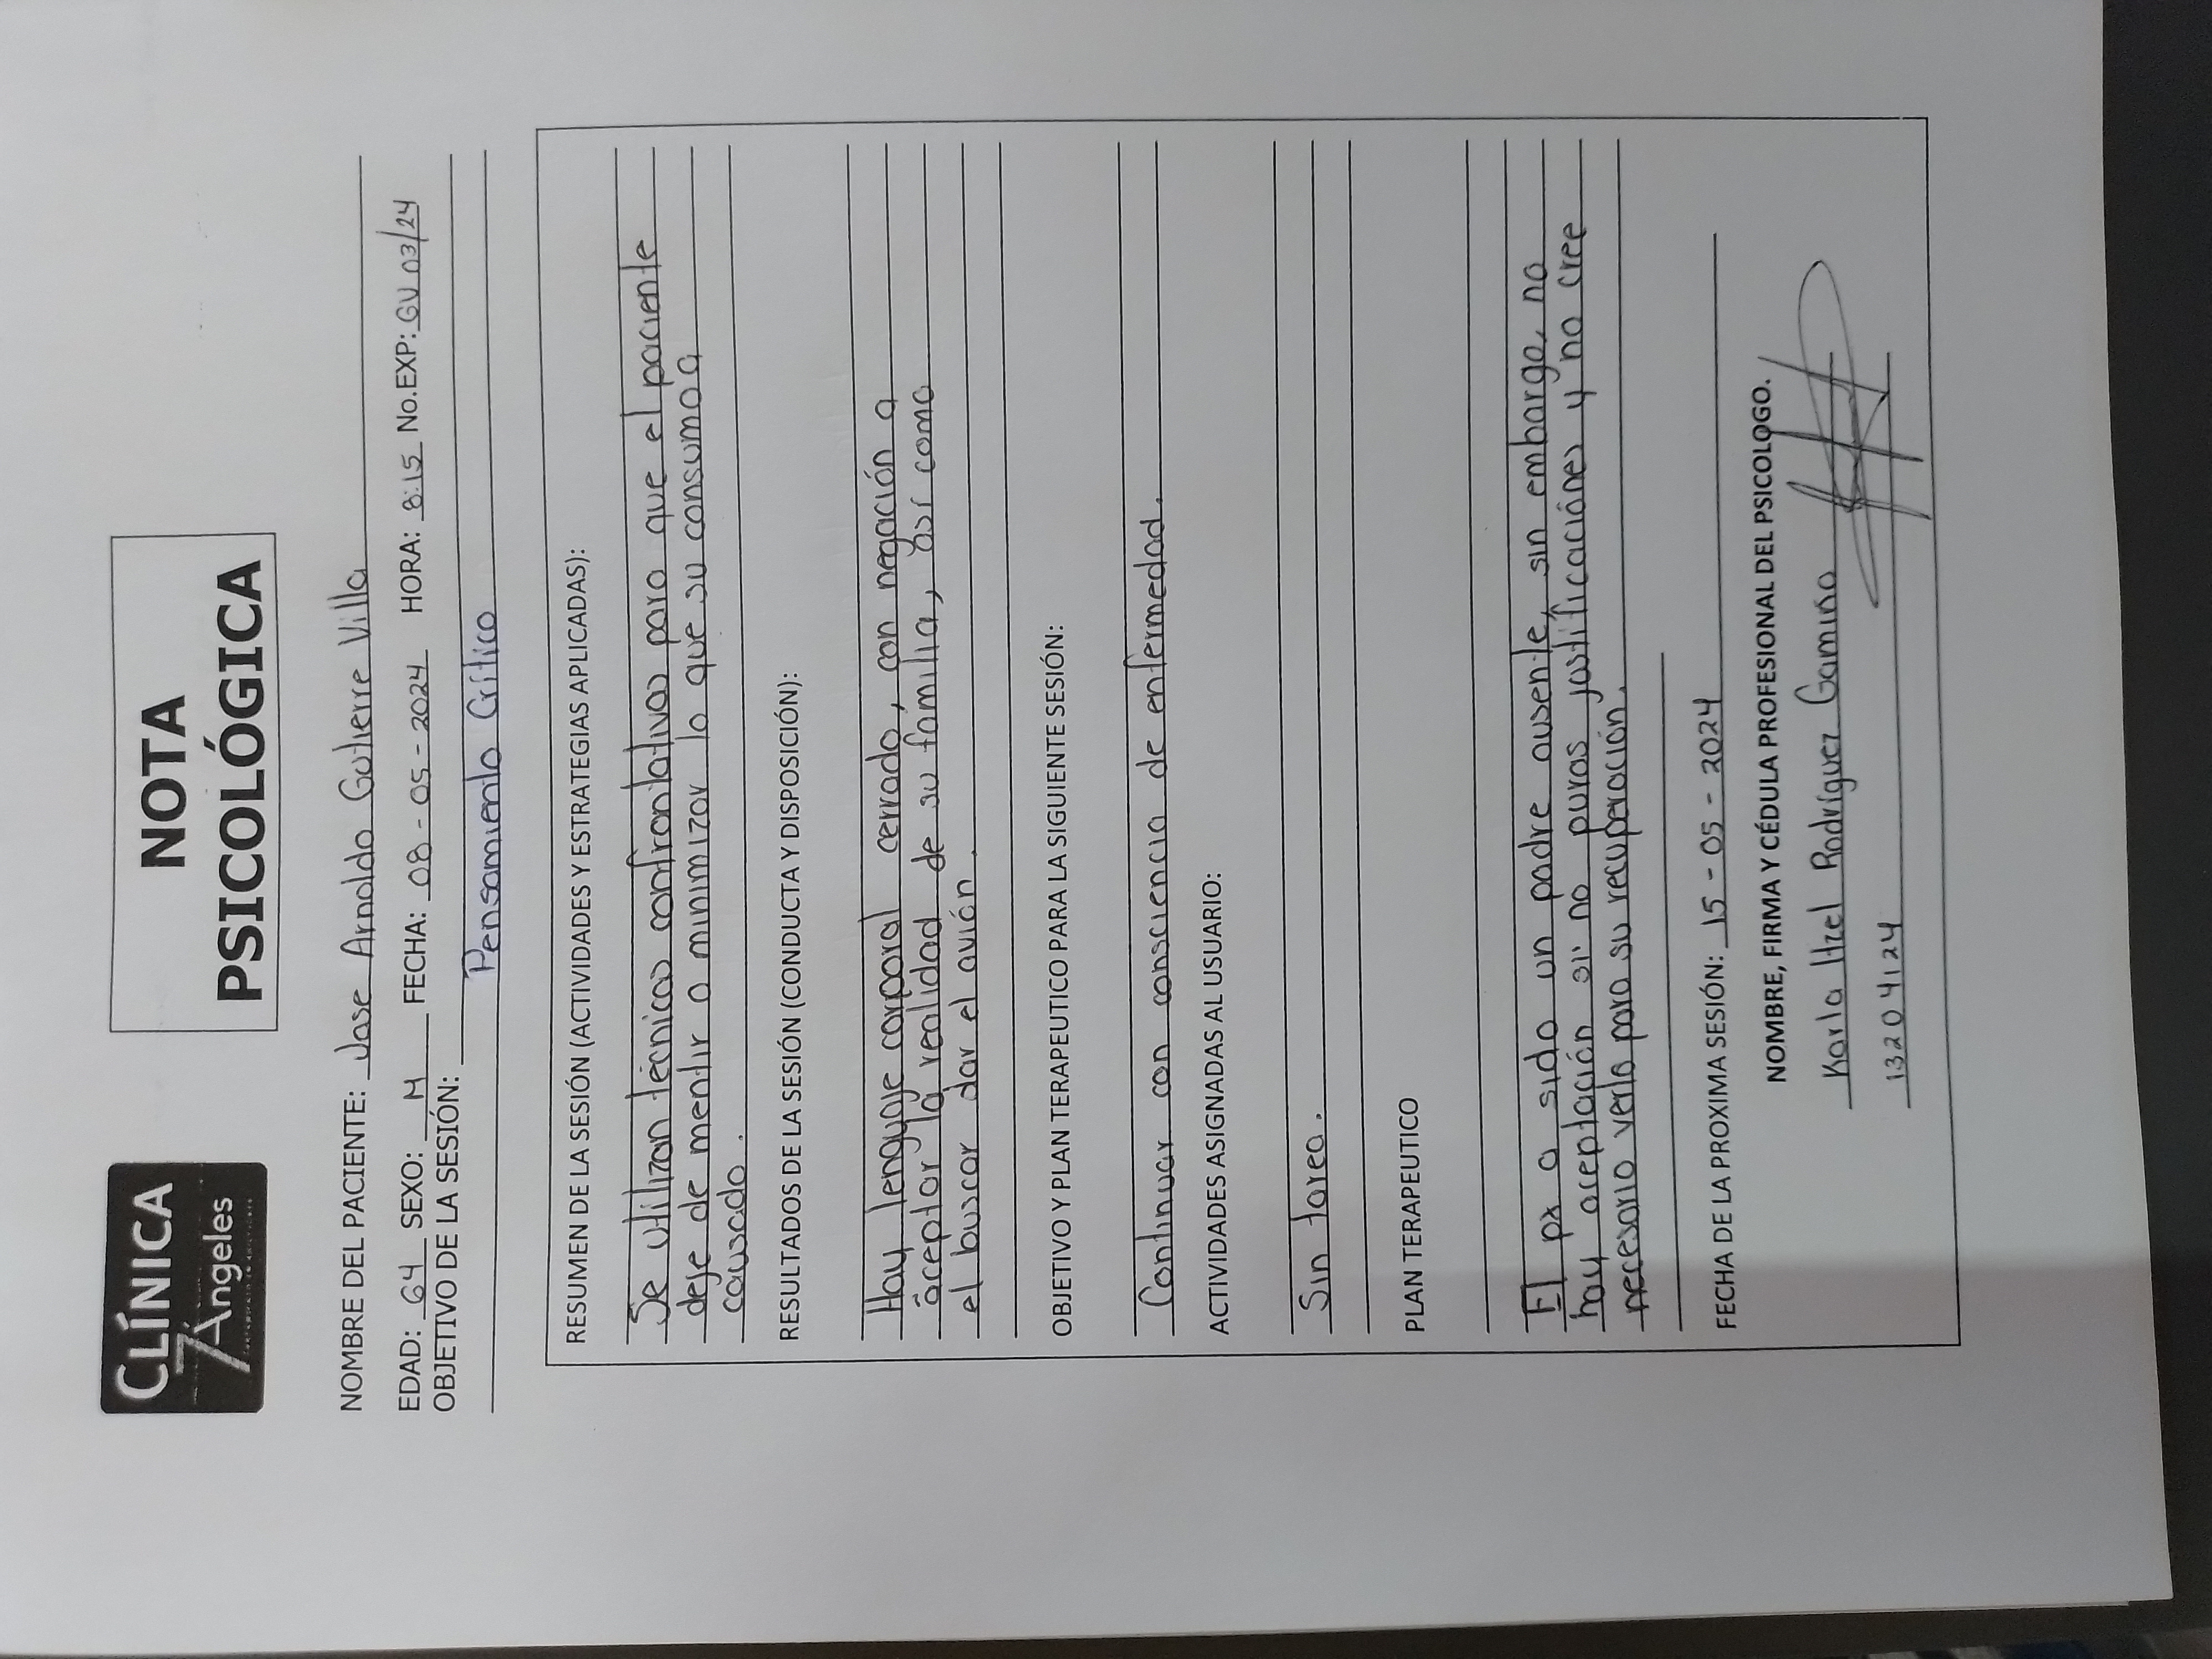 CLÍNICA
7 Ángeles
NOTA
PSICOLÓGICA
NOMBRE DEL PACIENTE: Jose Arnoldo Gutierre Villa
EDAD: 64 SEXO: M FECHA: 08-05-2024 HORA: 8:15 No.EXP: GV 03/24
OBJETIVO DE LA SESIÓN:
Pensamiento Crítico
RESUMEN DE LA SESIÓN (ACTIVIDADES Y ESTRATEGIAS APLICADAS):
Se utilizan técnicas confrontativas para que el paciente
deje de mentir o minimizar lo que su consumo a
causado.
RESULTADOS DE LA SESIÓN (CONDUCTA Y DISPOSICIÓN):
Hay lenguaje corporal cerrado, con negación a
aceptar la realidad de su familia, así como
el buscar dar el avión.
OBJETIVO Y PLAN TERAPEUTICO PARA LA SIGUIENTE SESIÓN:
Continuar con consciencia de enfermedad.
ACTIVIDADES ASIGNADAS AL USUARIO:
Sin tarea.
PLAN TERAPEUTICO
El px a sido un padre ausente, sin embargo, no
hay aceptación si no puras justificaciónes y no cree
necesario verlo para su recuperación.
FECHA DE LA PROXIMA SESIÓN: 15-05-2024
NOMBRE, FIRMA Y CÉDULA PROFESIONAL DEL PSICOLOGO.
Karla Itzel Rodríguez Gamiño
13204124